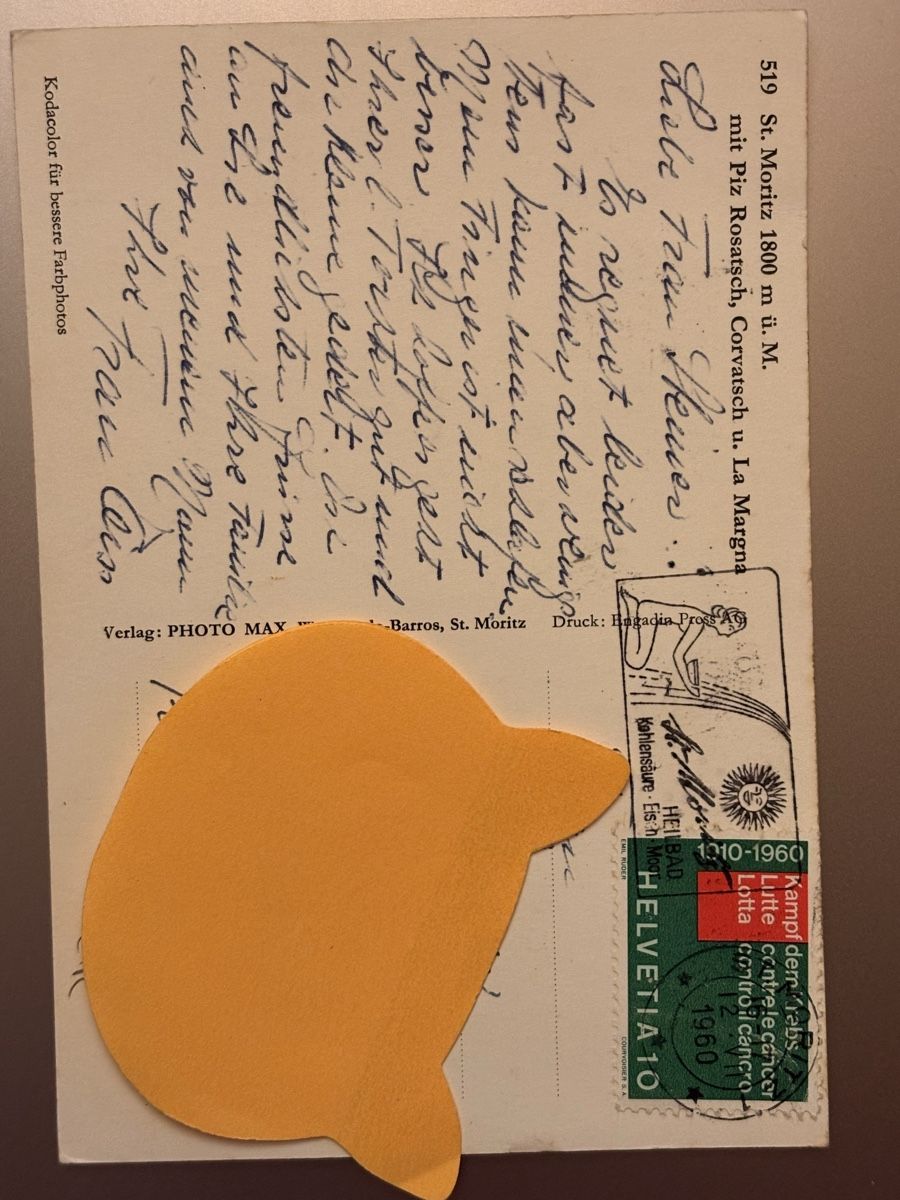 519 St. Moritz 1800 m ü. M.
mit Piz Rosatsch, Corvatsch u. La Margna
Liebe Frau Steiner.
Es regnet leider
fast immer, aber wenigs
tens kann man schlafen
Mein Finger ist nicht
böser. Ich hoffe es geht
Ihrer l. Tochter gut und
die Kleine gedeiht. Die
freundlichsten Grüsse
an Sie und Ihre Familie
auch von meinem Mann
Ihre Frau
Kodacolor für bessere Farbphotos
Verlag: PHOTO MAX -Barros, St. Moritz
Druck: Engadin Press AG
St. Moritz
HEILBAD
Kohlensäure · Eisen · Moor
1910-1960
Kampf dem Krebs
Lutte contre le cancer
Lotta contro il cancro
HELVETIA 10
EMIL RUDER
COURVOISIER S.A.
MORITZ
12 VII
1960